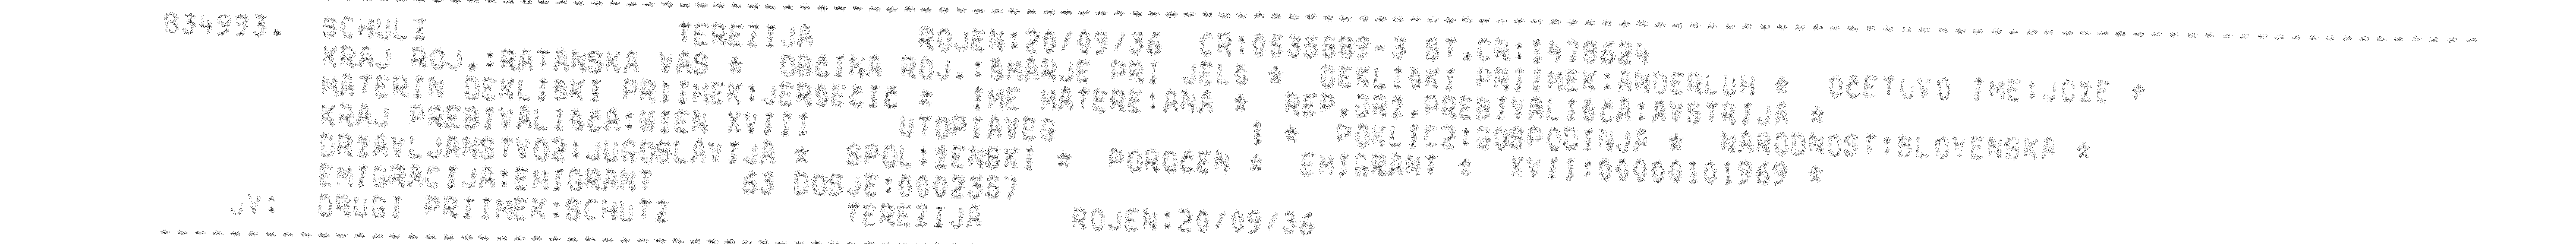 834993. SCHULI TEREZIJA ROJEN:20/09/36 CR:0535689-3 ST.CR:1478624
KRAJ ROJ.:RATANSKA VAS * OBČINA ROJ.:ŠMARJE PRI JELŠ * DEKLIŠKI PRIIMEK:ANDERLUH * OČETOVO IME:JOŽE *
MATERIN DEKLIŠKI PRIIMEK:JERŠEČIČ * IME MATERE:ANA * REP.DRŽ.PREBIVALIŠČA:AVSTRIJA *
KRAJ PREBIVALIŠČA:WIEN XVIII UTOPIAVEG 1 * POKLIC2:GOSPODINJA * NARODNOST:SLOVENSKA *
DRŽAVLJANSTVO2:JUGOSLAVIJA * SPOL:ŽENSKI * POROČEN * EMIGRANT * XVII:00000101969 *
EMIGRACIJA:EMIGRANT 63 DOSJE:0002367
JV: DRUGI PRIIMEK:SCHUTZ TEREZIJA ROJEN:20/09/36